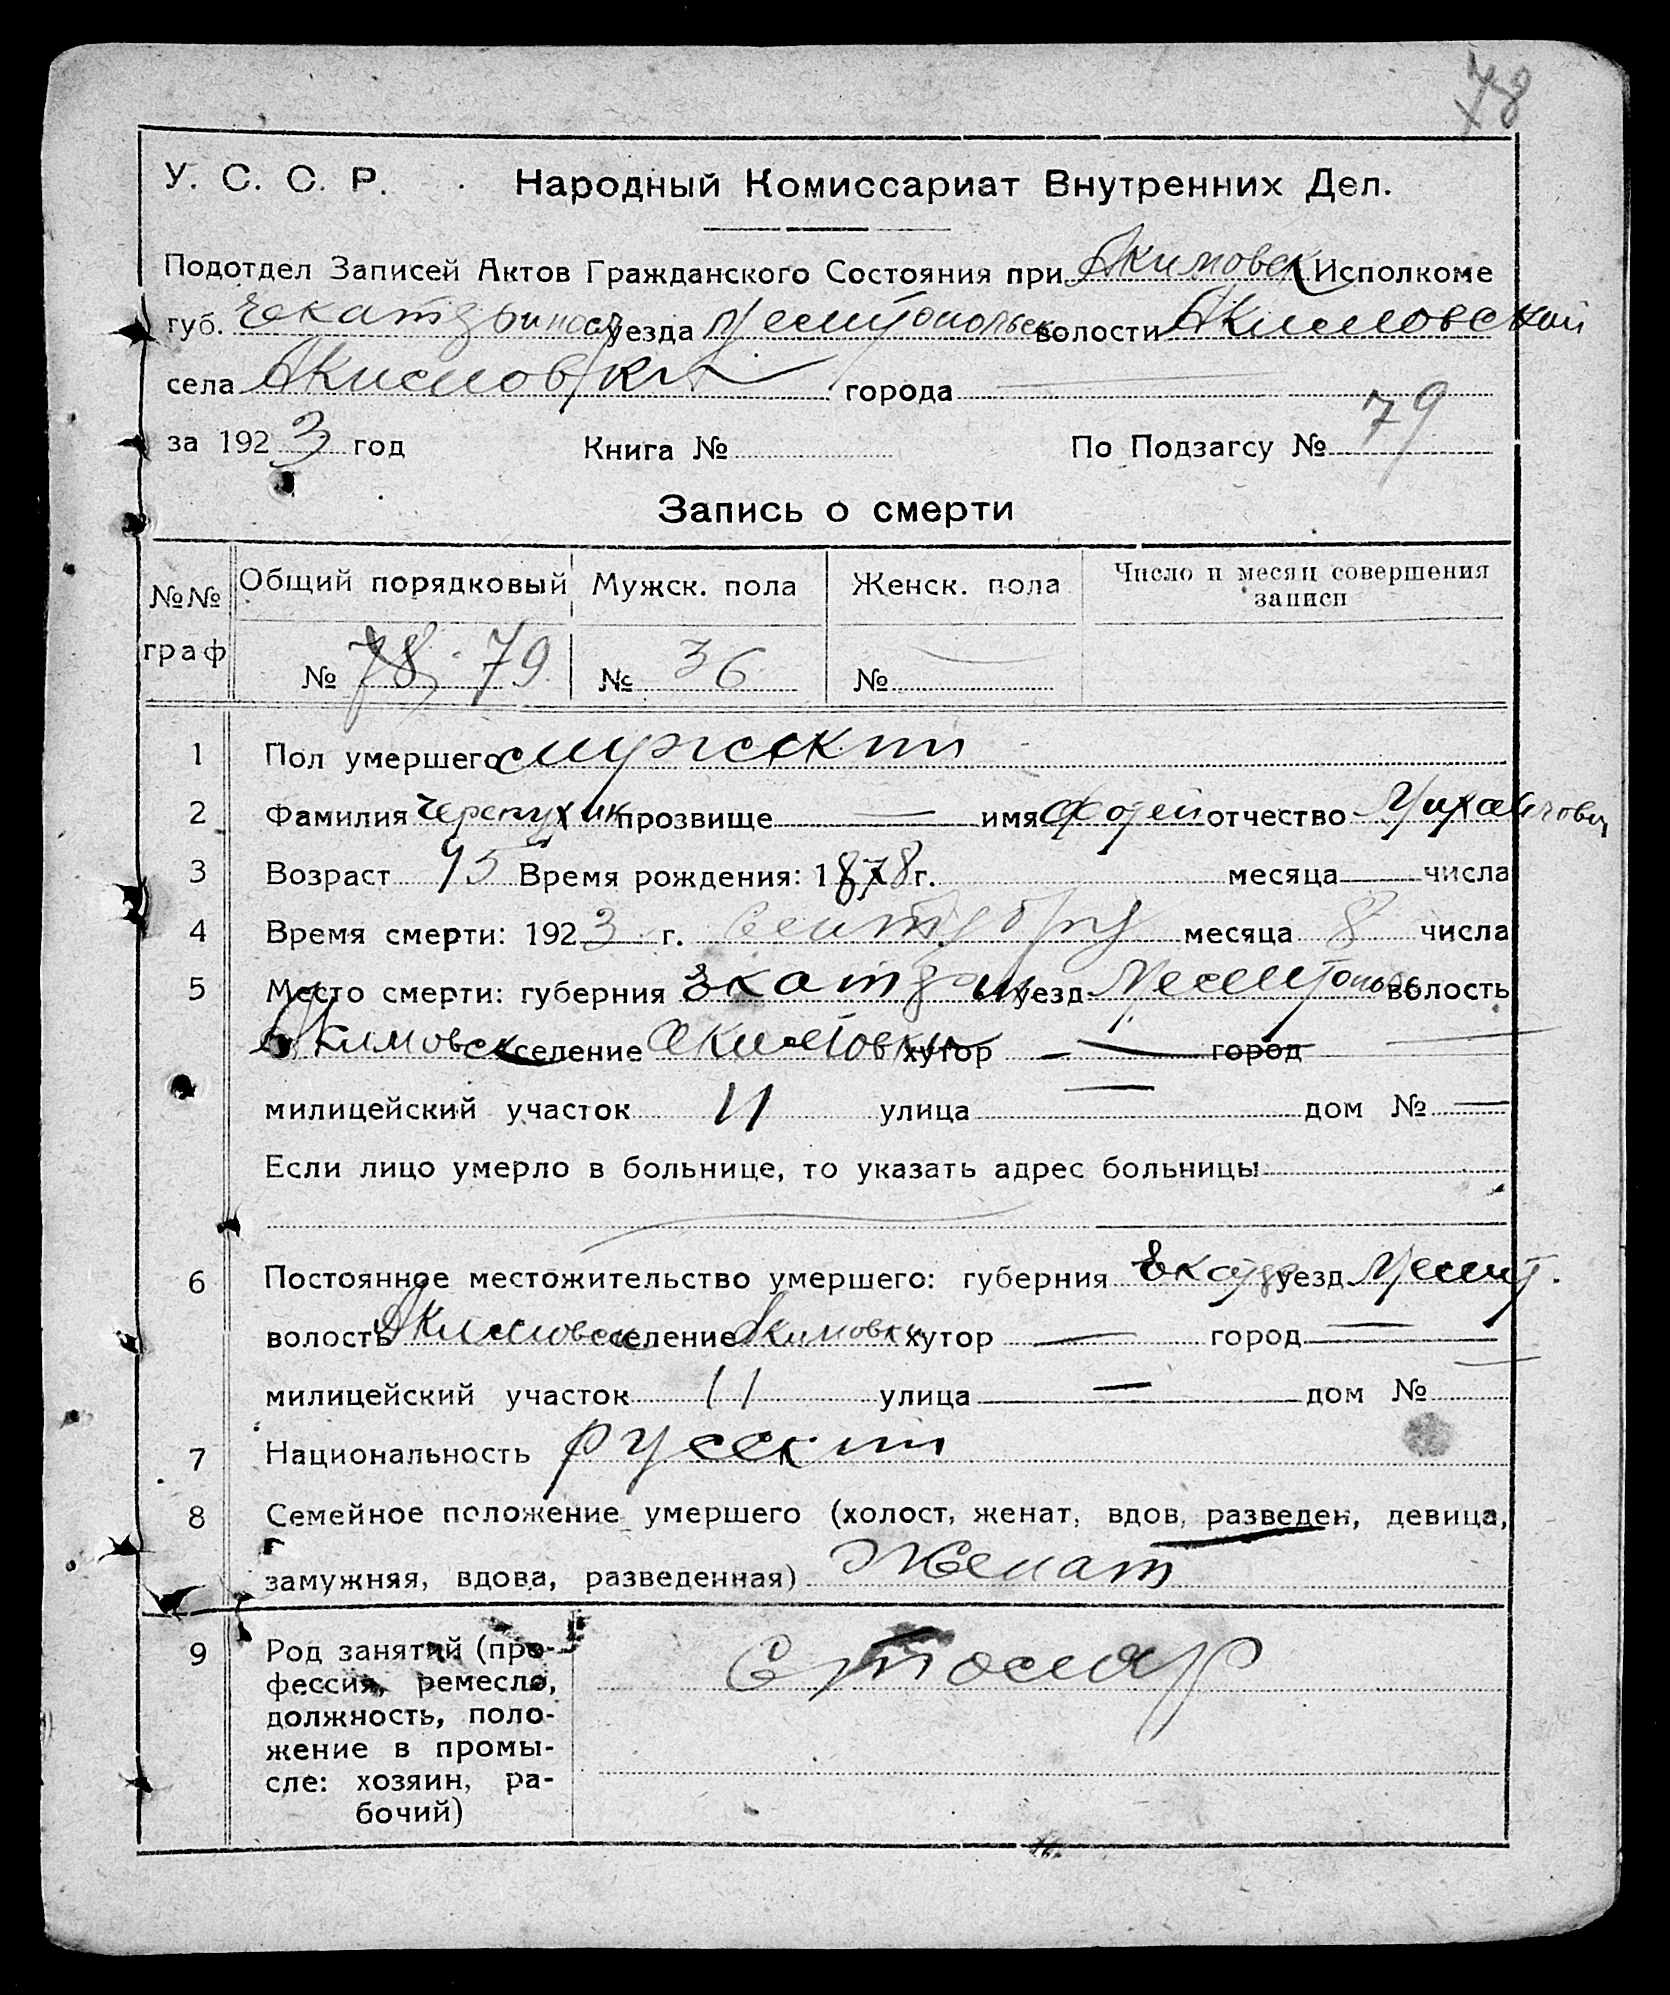 78
У. С. С. Р. Народный Комиссариат Внутренних Дел.
Подотдел Записей Актов Гражданского Состояния при Акимовск Исполкоме
губ. Екатэринос уезда Мелитопольск волости Акимовской
села Акимовка города —
за 1923 год Книга № По Подзагсу № 79
Запись о смерти
№№ граф Общий порядковый Мужск. пола Женск. пола Число и месяц совершения записи
№ 78, 79 № 36 № —
1 Пол умершего мужский
2 Фамилия прозвище — имя отчество
3 Возраст 45 Время рождения: 1878 г. месяца числа
4 Время смерти: 1923 г. месяца 8 числа
5 Место смерти: губерния Екатэрин уезд Мелитополь волость
Акимовск селение Акимовки хутор — город —
милицейский участок 11 улица — дом № —
Если лицо умерло в больнице, то указать адрес больницы
6 Постоянное местожительство умершего: губерния уезд Мелит.
волость селение Акимовки хутор — город —
милицейский участок 11 улица — дом № —
7 Национальность русский
8 Семейное положение умершего (холост, женат, вдов, разведен, девица,
замужняя, вдова, разведенная) Женат
9 Род занятий (про-
фессия, ремесло,
должность, поло-
жение в промы-
сле: хозяин, ра-
бочий)
Столяр